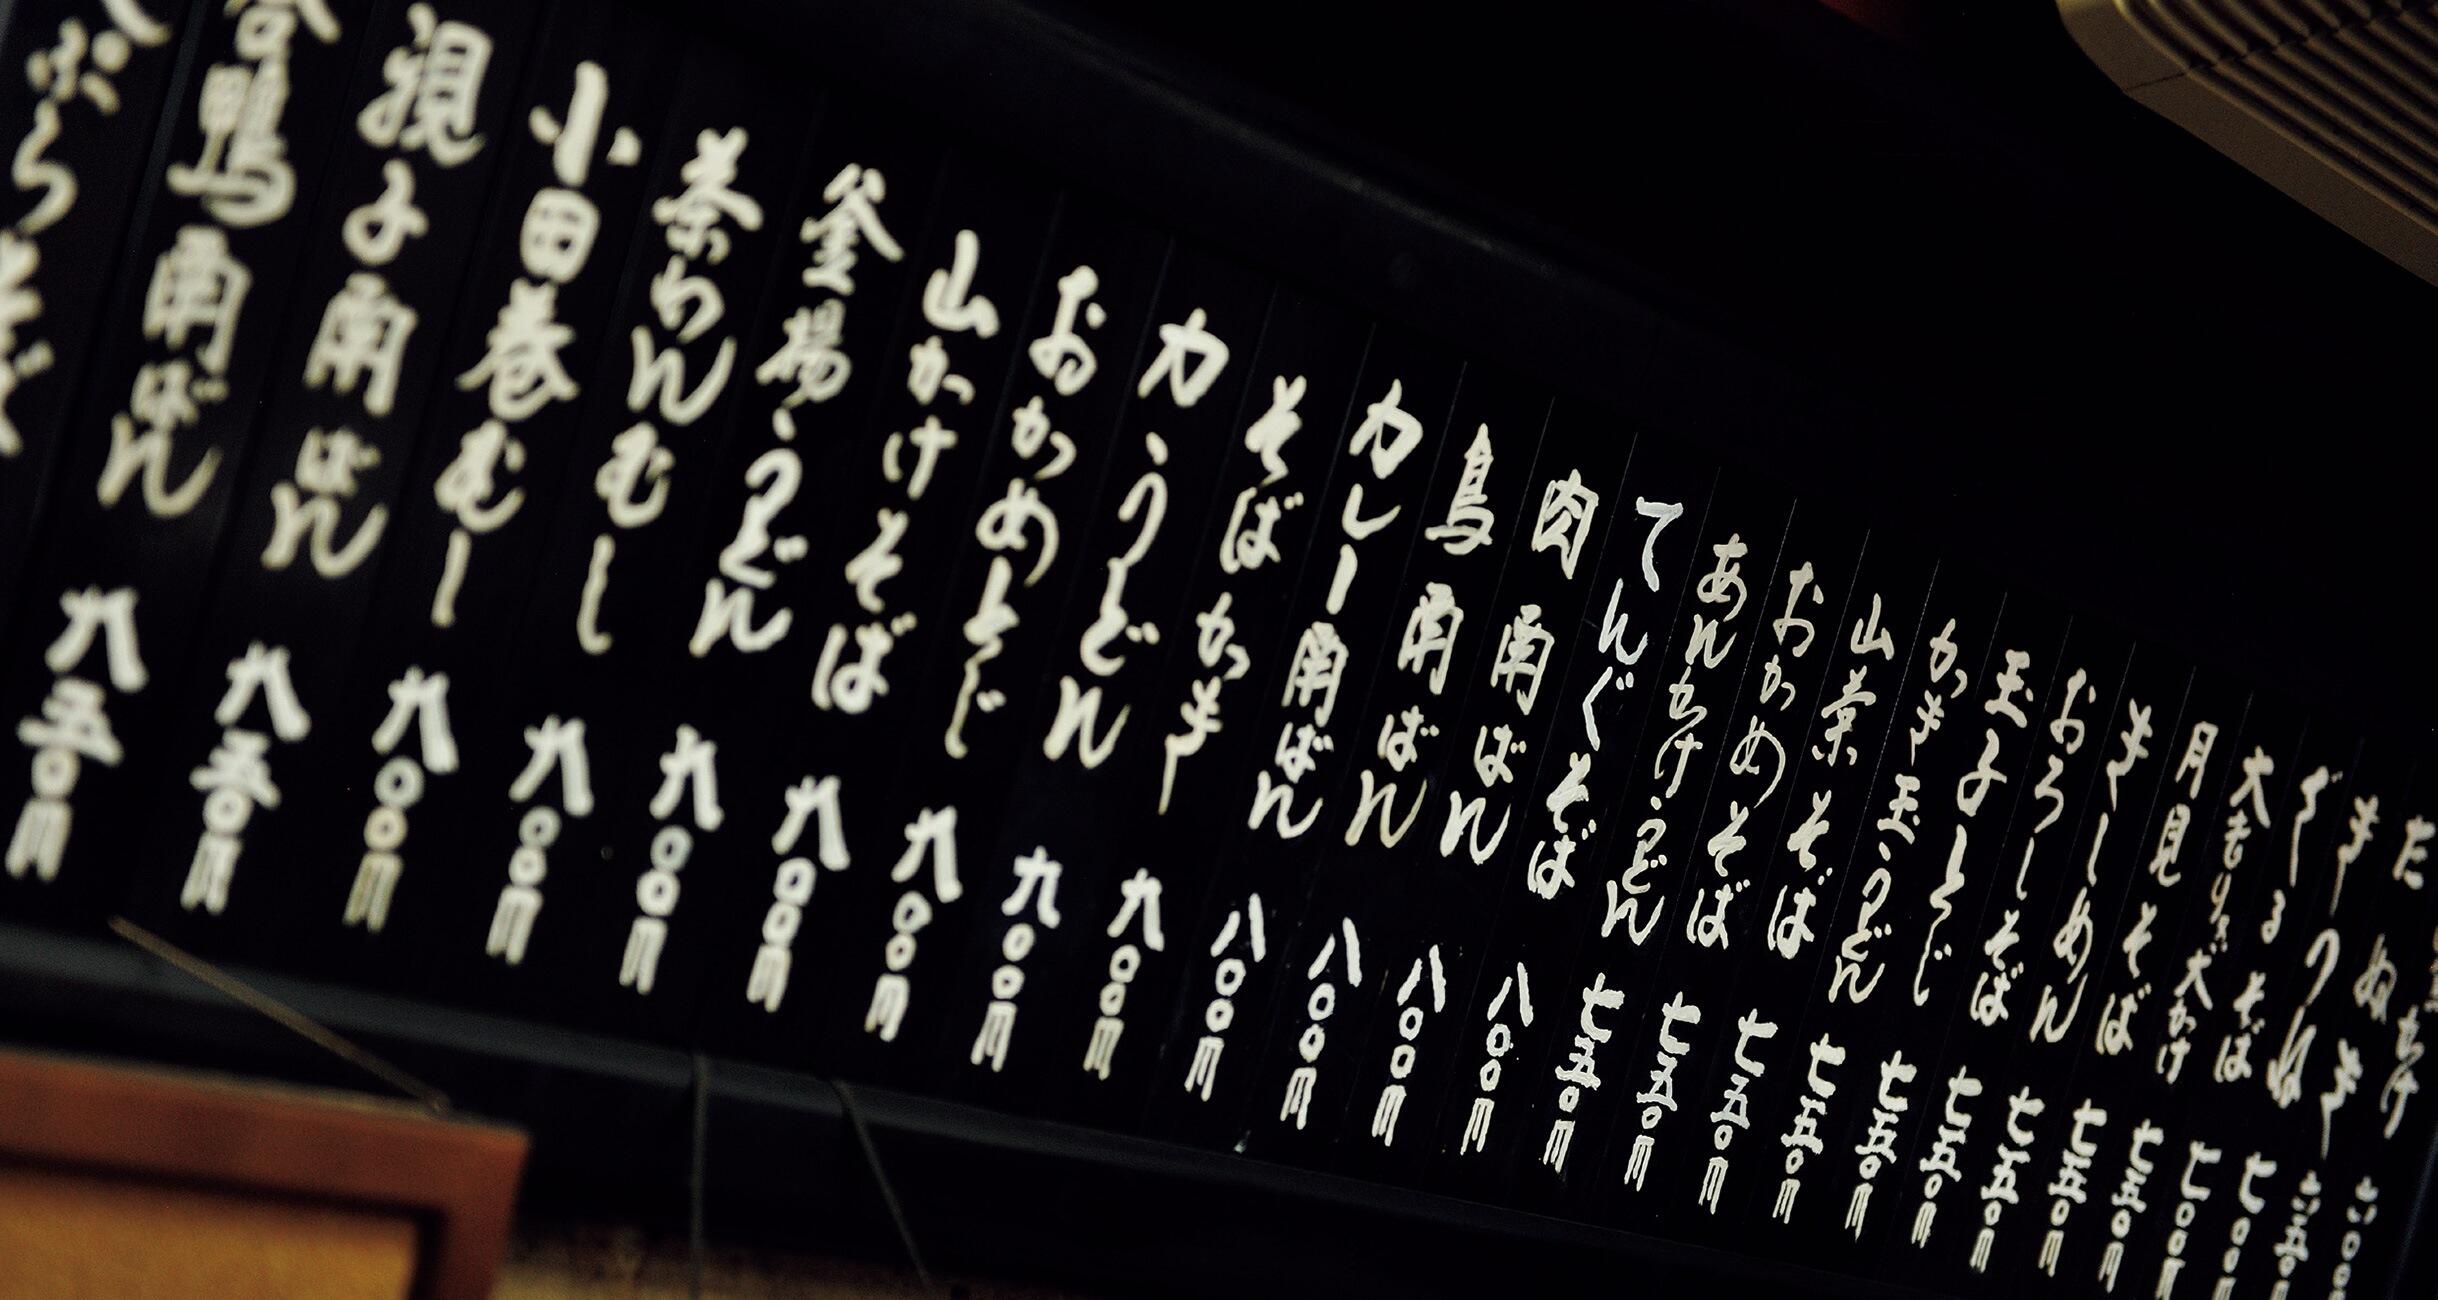 かけ 六〇〇
たぬき 六五〇
きつね 七〇〇
ざるそば 七〇〇円
大もり 大かけ 七五〇円
月見そば 七五〇円
きしめん 七五〇円
おろしそば 七五〇円
玉子とじ 七五〇円
かき玉うどん 七五〇円
山菜そば 七五〇円
おかめそば 七五〇円
あんかけうどん 七五〇円
てんぐそば 八〇〇円
肉南ばん 八〇〇円
鳥南ばん 八〇〇円
カレー南ばん 八〇〇円
そばがき 九〇〇円
力うどん 九〇〇円
おかめとじ 九〇〇円
山かけそば 九〇〇円
釜揚うどん 九〇〇円
茶わんむし 九〇〇円
小田巻むし 九〇〇円
親子南ばん 九五〇円
合鴨南ばん 九五〇円
ぷらそば